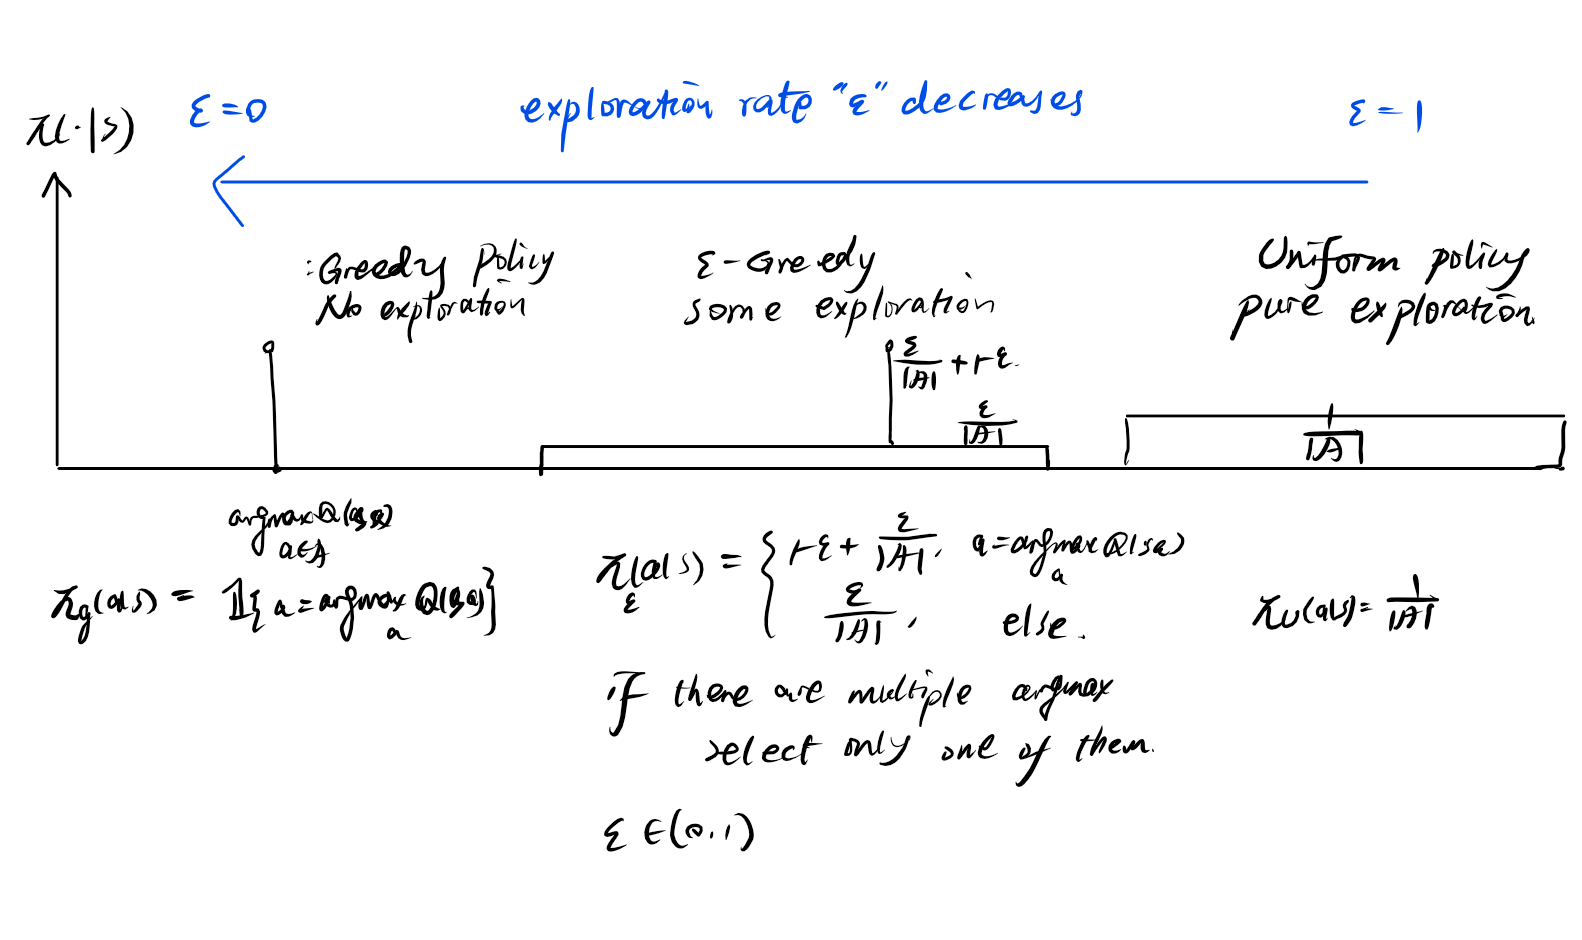 π(·|s)
ε=0
exploration rate "ε" decreases
ε=1
:Greedy Policy
No exploration
ε-Greedy
some exploration
Uniform policy
pure exploration.
ε/|A| + 1-ε.
ε/|A|
1/|A|
argmax Q(s,a)
a∈A
π_g(a|s) = 𝟙{a=argmax_a Q(s,a)}
π_ε(a|s) = { 1-ε + ε/|A|, a=argmax_a Q(s,a)
ε/|A|, else.
π_U(a|s) = 1/|A|
if there are multiple argmax
select only one of them.
ε∈(0,1)